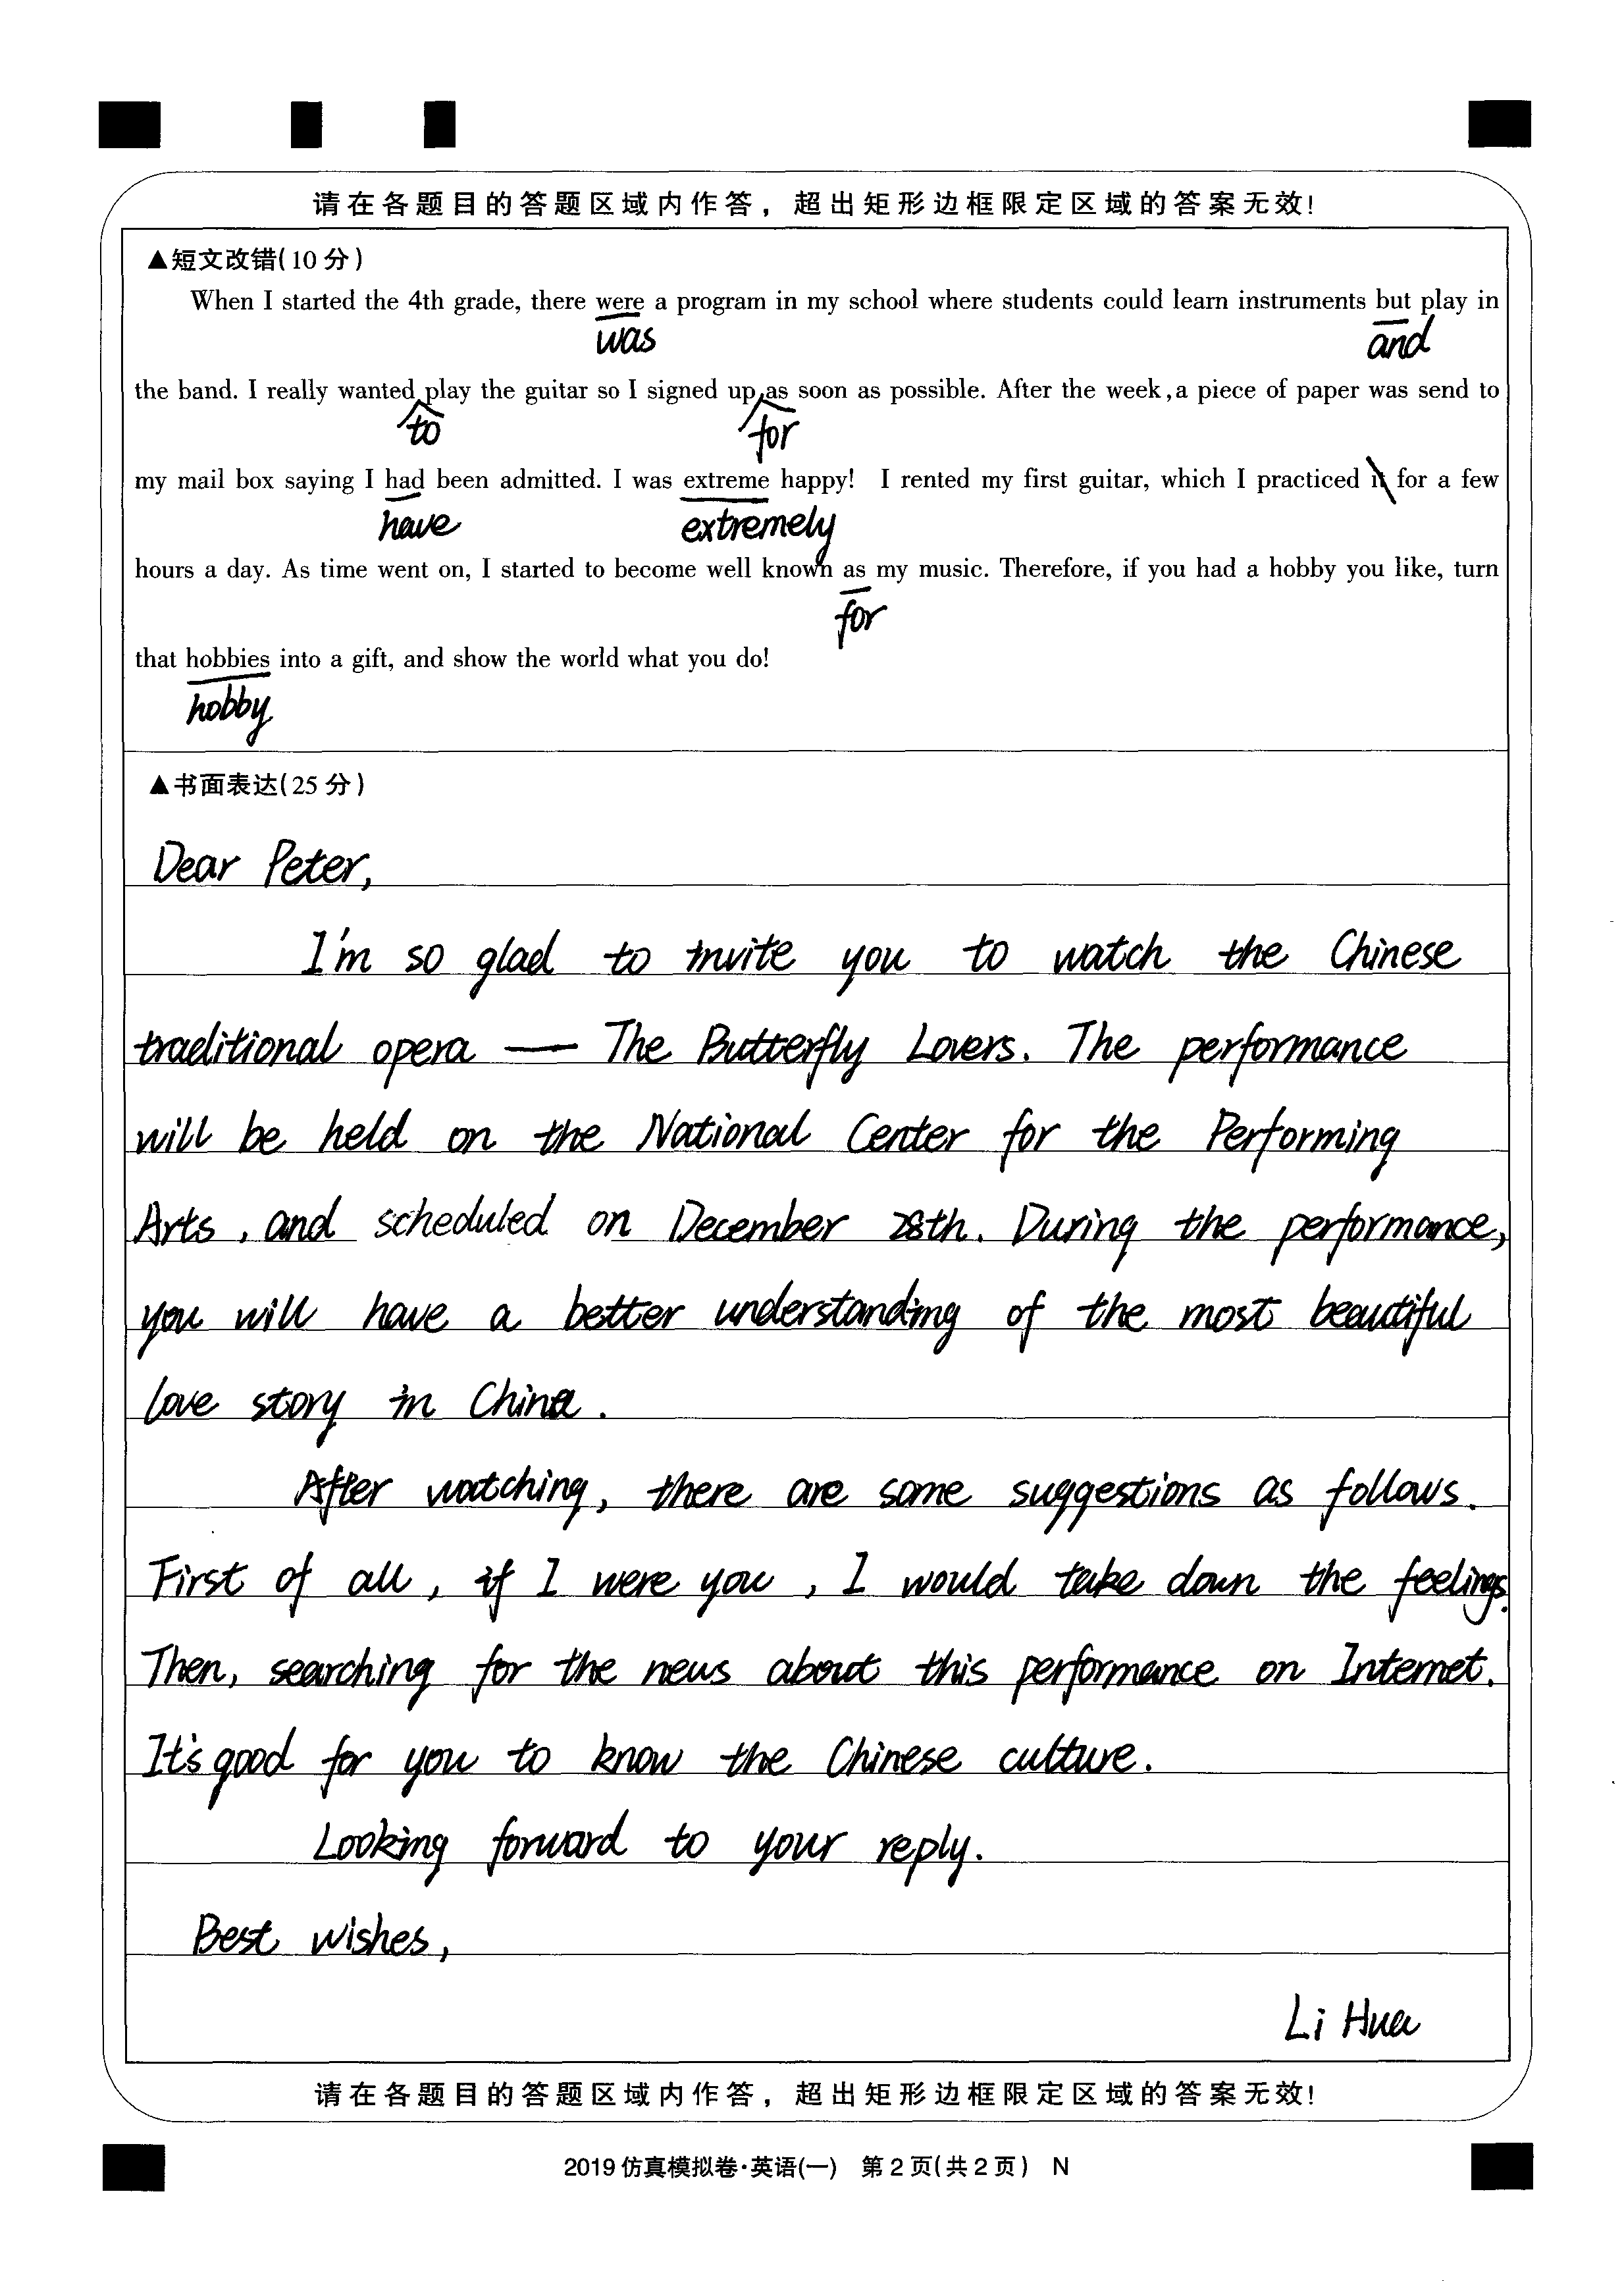 请在各题目的答题区域内作答，超出矩形边框限定区域的答案无效!
▲短文改错(10分)
When I started the 4th grade, there were a program in my school where students could learn instruments but play in
was and
the band. I really wanted play the guitar so I signed up as soon as possible. After the week, a piece of paper was send to
to for
my mail box saying I had been admitted. I was extreme happy! I rented my first guitar, which I practiced it for a few
have extremely
hours a day. As time went on, I started to become well known as my music. Therefore, if you had a hobby you like, turn
for
that hobbies into a gift, and show the world what you do!
hobby
▲书面表达(25分)
Dear Peter,
I'm so glad to invite you to watch the Chinese
traditional opera — The Butterfly Lovers. The performance
will be held on the National Center for the Performing
Arts, and scheduled on December 28th. During the performance,
you will have a better understanding of the most beautiful
love story in China.
After watching, there are some suggestions as follows.
First of all, if I were you, I would take down the feelings.
Then, searching for the news about this performance on Internet.
It's good for you to know the Chinese culture.
Looking forward to your reply.
Best wishes,
Li Hua
请在各题目的答题区域内作答，超出矩形边框限定区域的答案无效!
2019仿真模拟卷·英语(一) 第2页(共2页) N